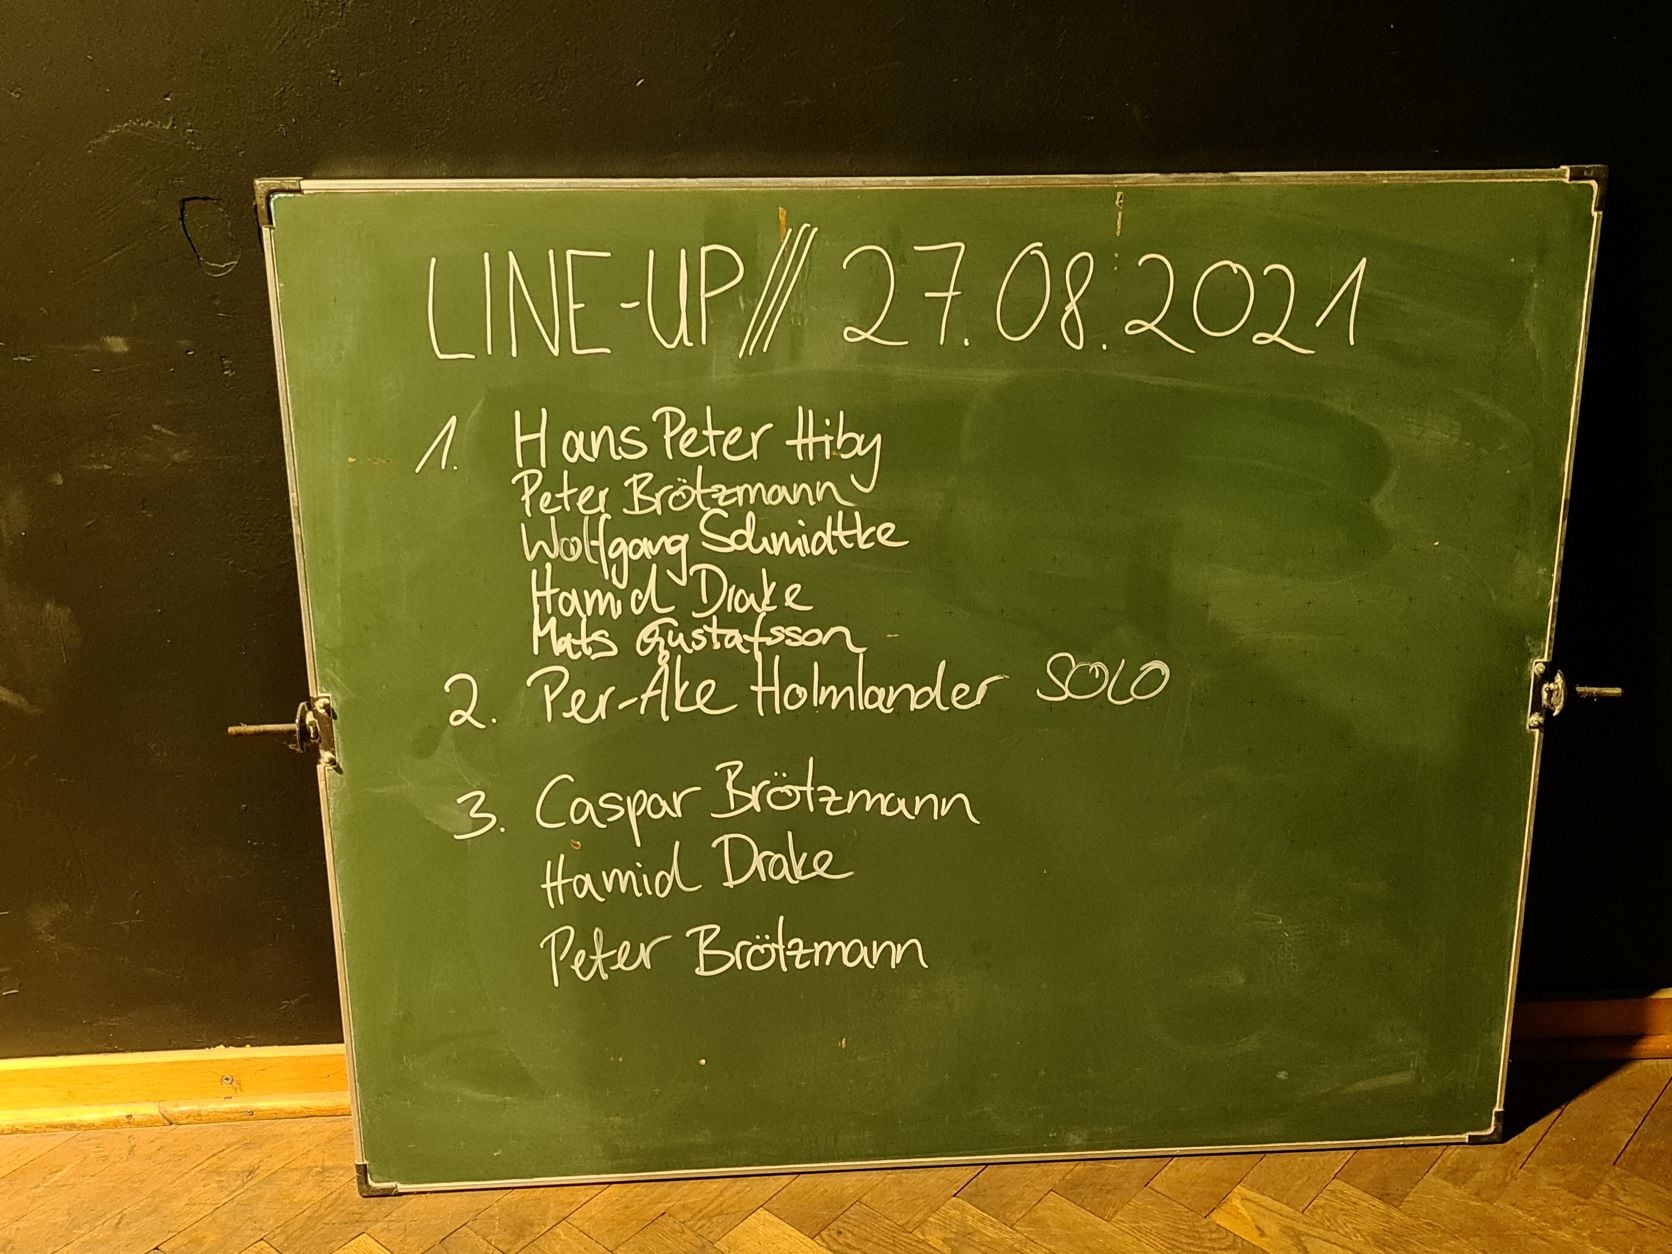 LINE-UP /// 27.08.2021
1. Hans Peter Hiby
Peter Brötzmann
Wolfgang Schmidtke
Hamid Drake
Mats Gustafsson
2. Per-Åke Holmlander SOLO
3. Caspar Brötzmann
Hamid Drake
Peter Brötzmann